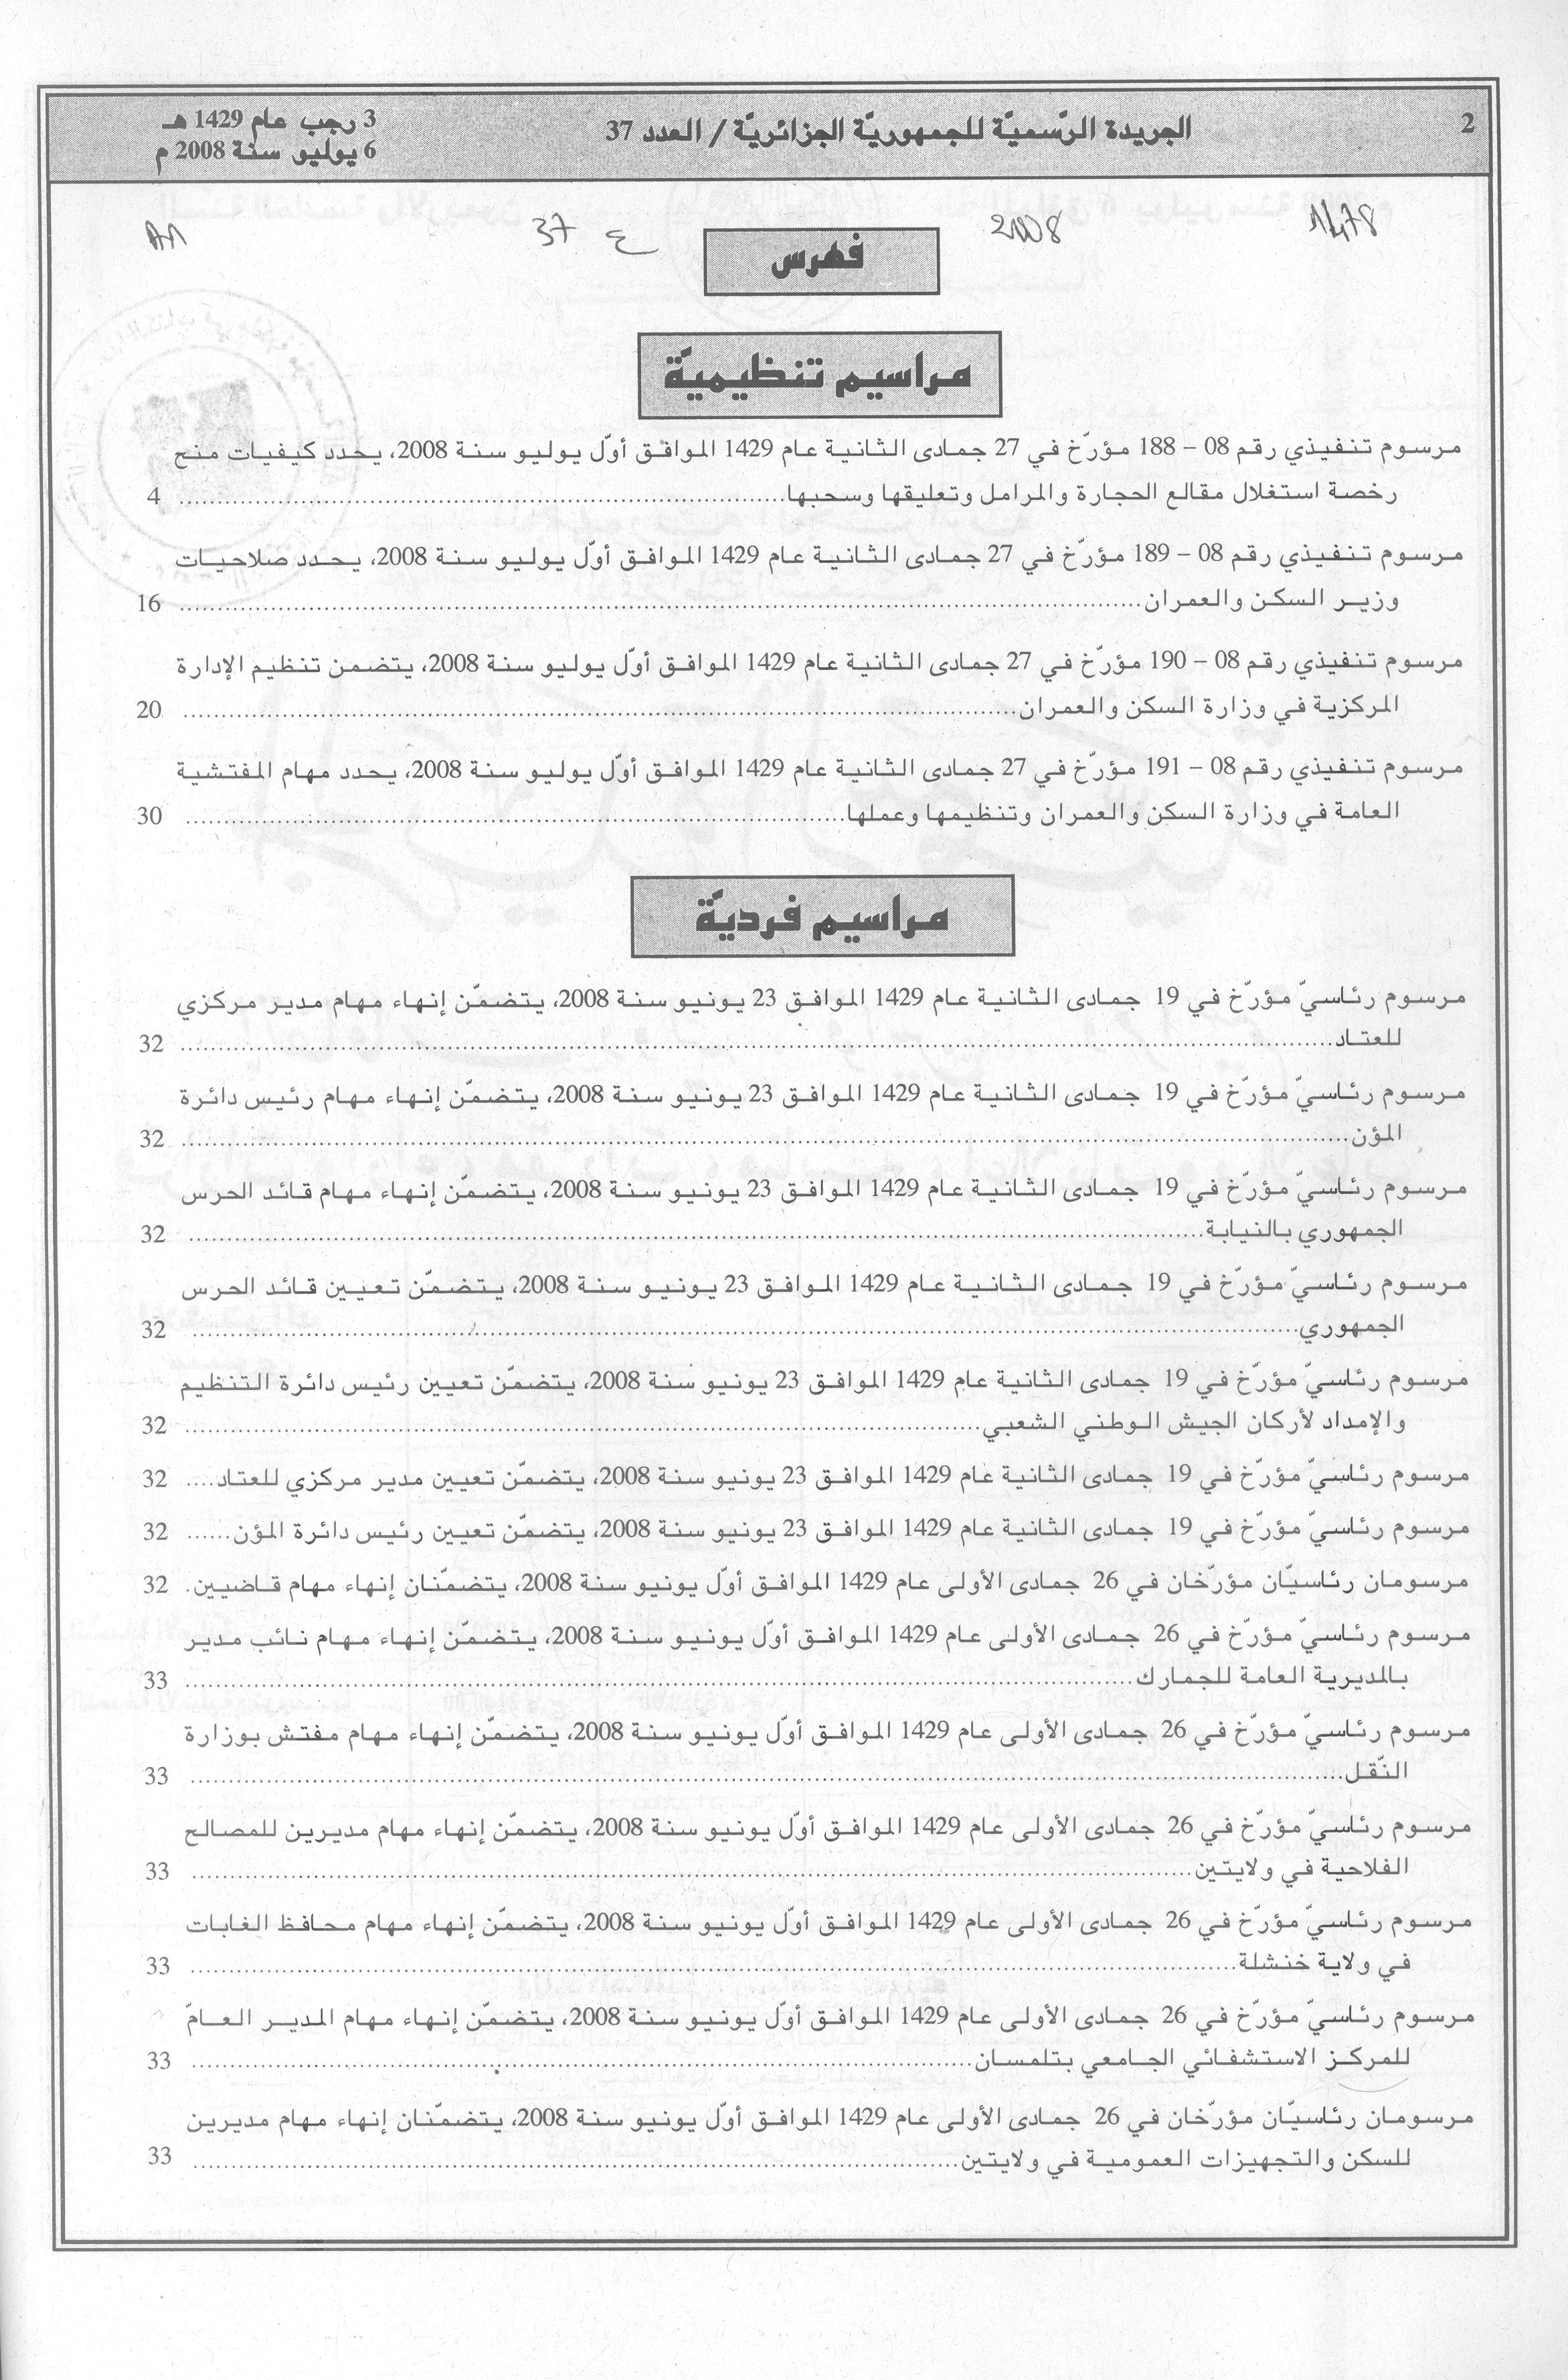 2
الجريدة الرّسميّة للجمهوريّة الجزائريّة / العدد 37
3 رجب عام 1429 هـ
6 يوليو سنة 2008 م
2008
ع 37
فهرس
مراسيم تنظيميّة
مرسوم تنفيذي رقم 08 – 188 مؤرّخ في 27 جمادى الثانية عام 1429 الموافق أوّل يوليو سنة 2008، يحدد كيفيات منح
رخصة استغلال مقالع الحجارة والمرامل وتعليقها وسحبها................ 4
مرسوم تنفيذي رقم 08 – 189 مؤرّخ في 27 جمادى الثانية عام 1429 الموافق أوّل يوليو سنة 2008، يحدد صلاحيات
وزير السكن والعمران................ 16
مرسوم تنفيذي رقم 08 – 190 مؤرّخ في 27 جمادى الثانية عام 1429 الموافق أوّل يوليو سنة 2008، يتضمن تنظيم الإدارة
المركزية في وزارة السكن والعمران................ 20
مرسوم تنفيذي رقم 08 – 191 مؤرّخ في 27 جمادى الثانية عام 1429 الموافق أوّل يوليو سنة 2008، يحدد مهام المفتشية
العامة في وزارة السكن والعمران وتنظيمها وعملها................ 30
مراسيم فرديّة
مرسوم رئاسيّ مؤرّخ في 19 جمادى الثانية عام 1429 الموافق 23 يونيو سنة 2008، يتضمّن إنهاء مهام مدير مركزي
للعتاد................ 32
مرسوم رئاسيّ مؤرّخ في 19 جمادى الثانية عام 1429 الموافق 23 يونيو سنة 2008، يتضمّن إنهاء مهام رئيس دائرة
المؤن................ 32
مرسوم رئاسيّ مؤرّخ في 19 جمادى الثانية عام 1429 الموافق 23 يونيو سنة 2008، يتضمّن إنهاء مهام قائد الحرس
الجمهوري بالنيابة................ 32
مرسوم رئاسيّ مؤرّخ في 19 جمادى الثانية عام 1429 الموافق 23 يونيو سنة 2008، يتضمّن تعيين قائد الحرس
الجمهوري................ 32
مرسوم رئاسيّ مؤرّخ في 19 جمادى الثانية عام 1429 الموافق 23 يونيو سنة 2008، يتضمّن تعيين رئيس دائرة التنظيم
والإمداد لأركان الجيش الوطني الشعبي................ 32
مرسوم رئاسيّ مؤرّخ في 19 جمادى الثانية عام 1429 الموافق 23 يونيو سنة 2008، يتضمّن تعيين مدير مركزي للعتاد.... 32
مرسوم رئاسيّ مؤرّخ في 19 جمادى الثانية عام 1429 الموافق 23 يونيو سنة 2008، يتضمّن تعيين رئيس دائرة المؤن...... 32
مرسومان رئاسيّان مؤرّخان في 26 جمادى الأولى عام 1429 الموافق أوّل يونيو سنة 2008، يتضمّنان إنهاء مهام قاضيين. 32
مرسوم رئاسيّ مؤرّخ في 26 جمادى الأولى عام 1429 الموافق أوّل يونيو سنة 2008، يتضمّن إنهاء مهام نائب مدير
بالمديرية العامة للجمارك................ 33
مرسوم رئاسيّ مؤرّخ في 26 جمادى الأولى عام 1429 الموافق أوّل يونيو سنة 2008، يتضمّن إنهاء مهام مفتش بوزارة
النّقل................ 33
مرسوم رئاسيّ مؤرّخ في 26 جمادى الأولى عام 1429 الموافق أوّل يونيو سنة 2008، يتضمّن إنهاء مهام مديرين للمصالح
الفلاحية في ولايتين................ 33
مرسوم رئاسيّ مؤرّخ في 26 جمادى الأولى عام 1429 الموافق أوّل يونيو سنة 2008، يتضمّن إنهاء مهام محافظ الغابات
في ولاية خنشلة................ 33
مرسوم رئاسيّ مؤرّخ في 26 جمادى الأولى عام 1429 الموافق أوّل يونيو سنة 2008، يتضمّن إنهاء مهام المدير العامّ
للمركز الاستشفائي الجامعي بتلمسان................ 33
مرسومان رئاسيّان مؤرّخان في 26 جمادى الأولى عام 1429 الموافق أوّل يونيو سنة 2008، يتضمّنان إنهاء مهام مديرين
للسكن والتجهيزات العمومية في ولايتين................ 33